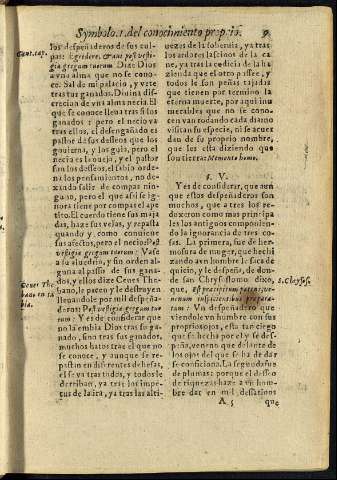 Symbolo. 1. del conocimiento prop io. 9
los despeñaderos de sus cul-
pas: Egredere, & abi post vesti-
gia gregum tuorum: Dize Dios
a vna alma que no se cono-
ce. Sal de mi palacio, y vete
tras tus ganados. Diuina dis-
crecion de vna alma necia. El
que se conoce lleua tras si los
ganados: pero el necio va
tras ellos, el desengañado es
pastor de sus desseos que los
gouierna, y los guia, pero el
necio es la oueja, y el pastor
son los desseos, el sabio orde-
na los pensamientos, no de-
xando salir de compas nin-
guno, pero el que assi se ig-
nora tiene por compas el ape
tito. El cuerdo tiene sus maja
das, haze sus velas, y repasta
quando y como conuiene
sus afectos, pero el necio: Post
vestigia gregum tuorum: Vase
a su aluedrio, y sin orden al-
guna al passo de sus gana-
dos, y ellos dize Ceues The-
bano, le pacen y le destruyen
lleuandole por mil despeña-
deros: Post vestigia gregum tuo
rum: Y es de considerar que
no la embia Dios tras su ga-
nado, sino tras sus ganados,
muchos hatos trae el que no
se conoce, y aunque se re-
pasten en diferentes dehesas,
el se va tras todos, y todos le
derriban, ya tras los impe-
tus de la ira, ya tras las alti-
uezes de la soberuia, ya tras
los ardores lasciuos de la car
ne, ya tras la codicia de la ha
zienda que el otro possee, y
todos le son pastos tajadas
que tienen por termino la
eterna muerte, por aqui ha
inumerables que no se cono-
cen van rodando cada dia, no
visitan su especie, ni se acuer
dan de su proprio nombre,
que es lo que ella diziendo
que son tierra: Memento homo.
§. V.
Y es de considerar, que aun
que estos despeñaderos son
muchos, que a tres los re-
duxeron como mas principa
les los antiguos componiendo
de la ignorancia de tres co-
sas. La primera, fue de her-
mosura de muger, porque no
conociendo el hombre la fla-
queza, y le despeña, de don-
de san Chrysostomo dixo,
que, Est præcipitium præcipite-
uenum suspicientibus præpara-
tum: Vn despeñadero que
viendole vn hombre con sus
propios ojos, esta tan ciego
que se hecha por el y se des-
peña, veneno que delante de
los ojos del que se ha de dar
se confeciona. La segunda es
de plumas: porque el desseo
de riquezas haze a vn hom-
bre dar en mil desatinos
A 5 que
Cant. cap.
Ceues The
bano en ta
bla.
S. Chrysos.